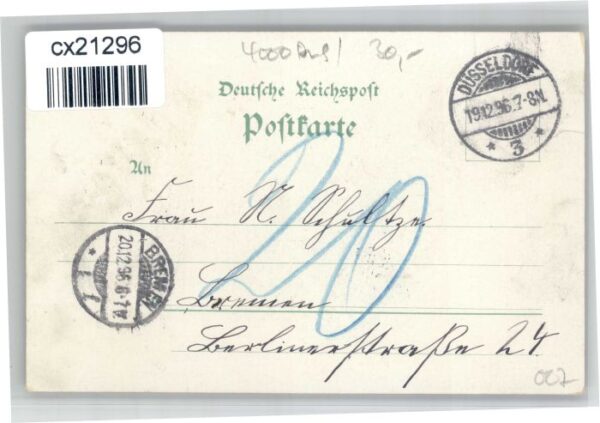 cx21296
30,-
Deutsche Reichspost
Postkarte
DÜSSELDORF
19.12.96.7-8N.
* 3 *
An
20
Frau N. Schultze.
BREMEN
20.12.96.6-7V.
* 1 *
Bremen
Berlinerstraße 24.
007